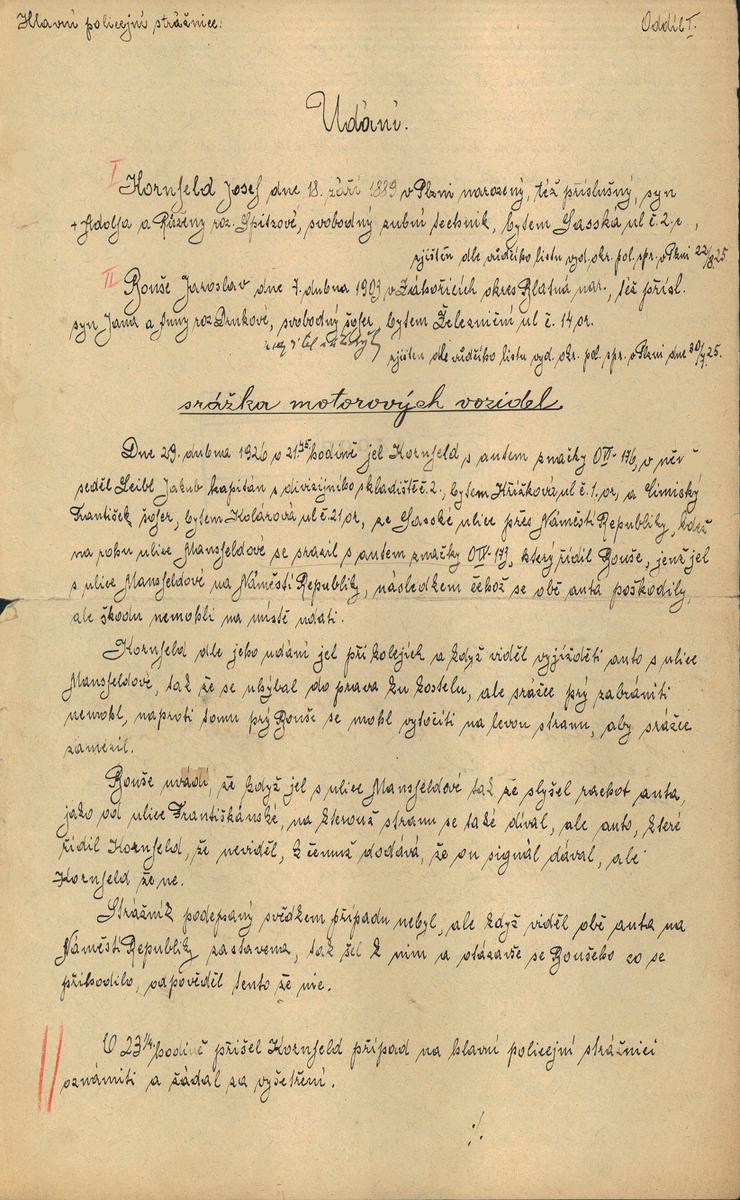 Hlavní policejní strážnice:
Oddíl I.
Udání.
I
Kornfeld Josef dne 18. září 1889 v Plzni narozený, též příslušný, syn
+ Adolfa a Růženy roz. Spitzové, svobodný zubní technik, bytem Sasská ul č. 2.
zjištěn dle vůdčího listu vyd. okr. pol. spr. v Plzni 22/8.25
II
Bouše Jaroslav dne 7. dubna 1903 v Záhořicích okres Blatná nar., též přísl.
syn Jana a Anny roz Drnkové, svobodný šofer, bytem Železniční ul č. 14 or.
zjištěn dle vůdčího listu vyd. okr. pol. spr. v Plzni dne 30/7.25.
srážka motorových vozidel.
Dne 29. dubna 1926 o 21.45 hodině jel Kornfeld s autem značky OVI-176, v něv
seděl Leibl Jakub kapitán s divizijního skladiště č. 2., bytem Hříšková ul č. 1. or, a
František šofer, bytem Kolárová ul č. 21 or, ze Sasské ulice přes Náměstí Republiky, kdež
na rohu ulice Mansfeldové se srazil s autem značky OIV-173, který řídil Bouše, jenž jel
s ulice Mansfeldové na Náměstí Republiky, následkem čehož se obě auta poškodily,
ale škodu nemohli na místě udati.
Kornfeld dle jeho udání jel při kolejích a když viděl vyjížděti auto s ulice
Mansfeldové, tak že se uhýbal do prava ku kostelu, ale srážce prý zabrániti
nemohl, naproti tomu prý Bouše se mohl vytočiti na levou stranu, aby srážce
zamezil.
Bouše uvádí, že když jel s ulice Mansfeldové tak že slyšel rachot auta,
jako od ulice Františkánské, na kterouž stranu se také díval, ale auto, které
řídil Kornfeld, že neviděl, k čemuž dodává, že on signál dával, ale
Kornfeld že ne.
Strážník podepsaný svědkem případu nebyl, ale když viděl obě auta na
Náměstí Republiky zastavena, tak šel k nim a otázavše se Boušeho co se
přihodilo, odpověděl tento že nic.
O 23 1/4 hodině přišel Kornfeld případ na hlavní policejní strážnici
oznámiti a žádal za vyšetření.
./.